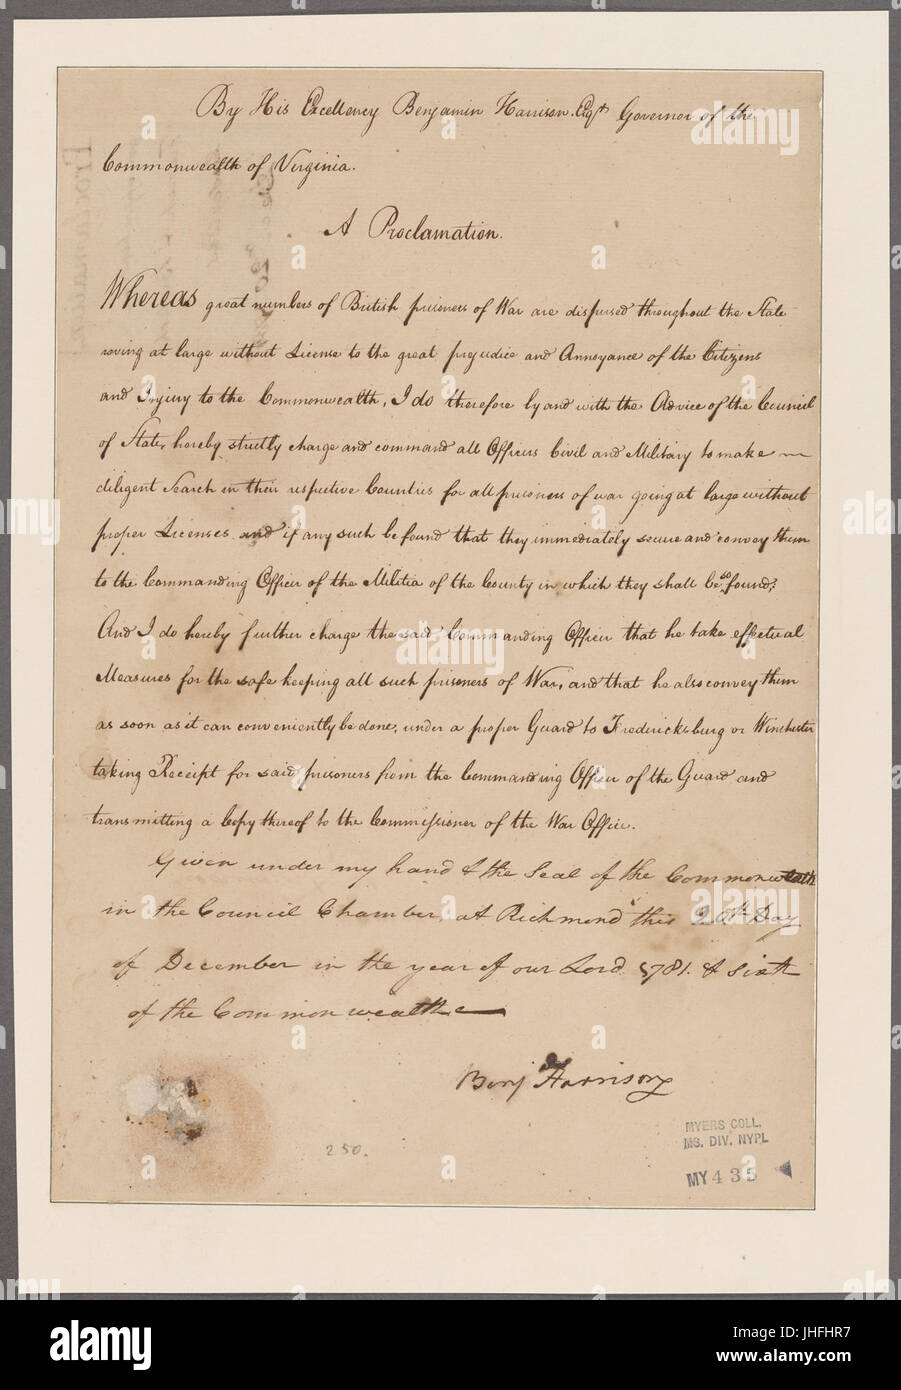 By His Excellency Benjamin Harrison Esqr Governor of the
Commonwealth of Virginia.
A Proclamation.
Whereas great numbers of British prisoners of War are dispersed throughout the State
roving at large without License to the great prejudice and Annoyance of the Citizens
and Injury to the Commonwealth, I do therefore by and with the Advice of the Council
of State, hereby strictly charge and command all Officers Civil and Military to make
diligent Search in their respective Counties for all prisoners of war going at large without
proper Licenses and if any such be found that they immediately secure and convey them
to the Commanding Officer of the Militia of the County in which they shall be so found;
And I do hereby further charge the said Commanding Officer that he take effectual
Measures for the safe keeping all such prisoners of War, and that he also convey them
as soon as it can conveniently be done, under a proper Guard to Fredericksburg or Winchester
taking Receipt for said prisoners from the Commanding Officer of the Guard and
transmitting a Copy thereof to the Commissioner of the War Office.
Given under my hand & the Seal of the Commonwealth
in the Council Chamber, at Richmond this 20th Day
of December in the year of our Lord 1781. & sixth
of the Commonwealth
Benj Harrison
MYERS COLL.
MS. DIV. NYPL
250.
MY 435
alamy
alamy stock photo
JHFHR7
www.alamy.com